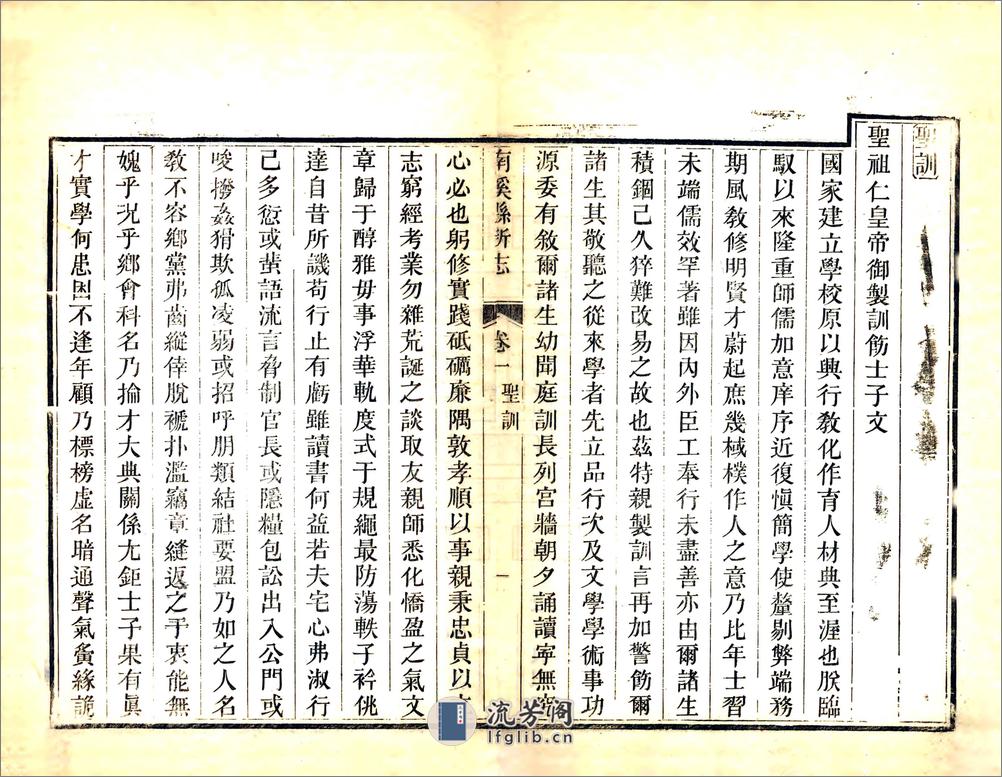 聖訓
聖祖仁皇帝御製訓飭士子文
國家建立學校原以興行教化作育人材典至渥也朕臨
馭以來隆重師儒加意庠序近復慎簡學使釐剔弊端務
期風教修明賢才蔚起庶幾棫樸作人之意乃比年士習
未端儒效罕著雖因內外臣工奉行未盡善亦由爾諸生
積錮已久猝難改易之故也茲特親製訓言再加警飭爾
諸生其敬聽之從來學者先立品行次及文學學術事功
源委有敘爾諸生幼聞庭訓長列宮牆朝夕誦讀寧無
南溪縣新志 卷一 聖訓 一
心必也躬修實踐砥礪廉隅敦孝順以事親秉忠貞以
志窮經考業勿雜荒誕之談取友親師悉化憍盈之氣文
章歸于醇雅毋事浮華軌度式于規繩最防蕩軼子衿佻
達自昔所譏苟行止有虧雖讀書何益若夫宅心弗淑行
己多愆或蜚語流言脅制官長或隱糧包訟出入公門或
唆撥姦猾欺孤凌弱或招呼朋類結社要盟乃如之人名
教不容鄉黨弗齒縱倖脫褫扑濫竊章縫返之于衷能無
媿乎況乎鄉會科名乃掄才大典關係尤鉅士子果有眞
才實學何患困不逢年顧乃標榜虛名暗通聲氣夤緣詭
流芳阁
lfglib.cn